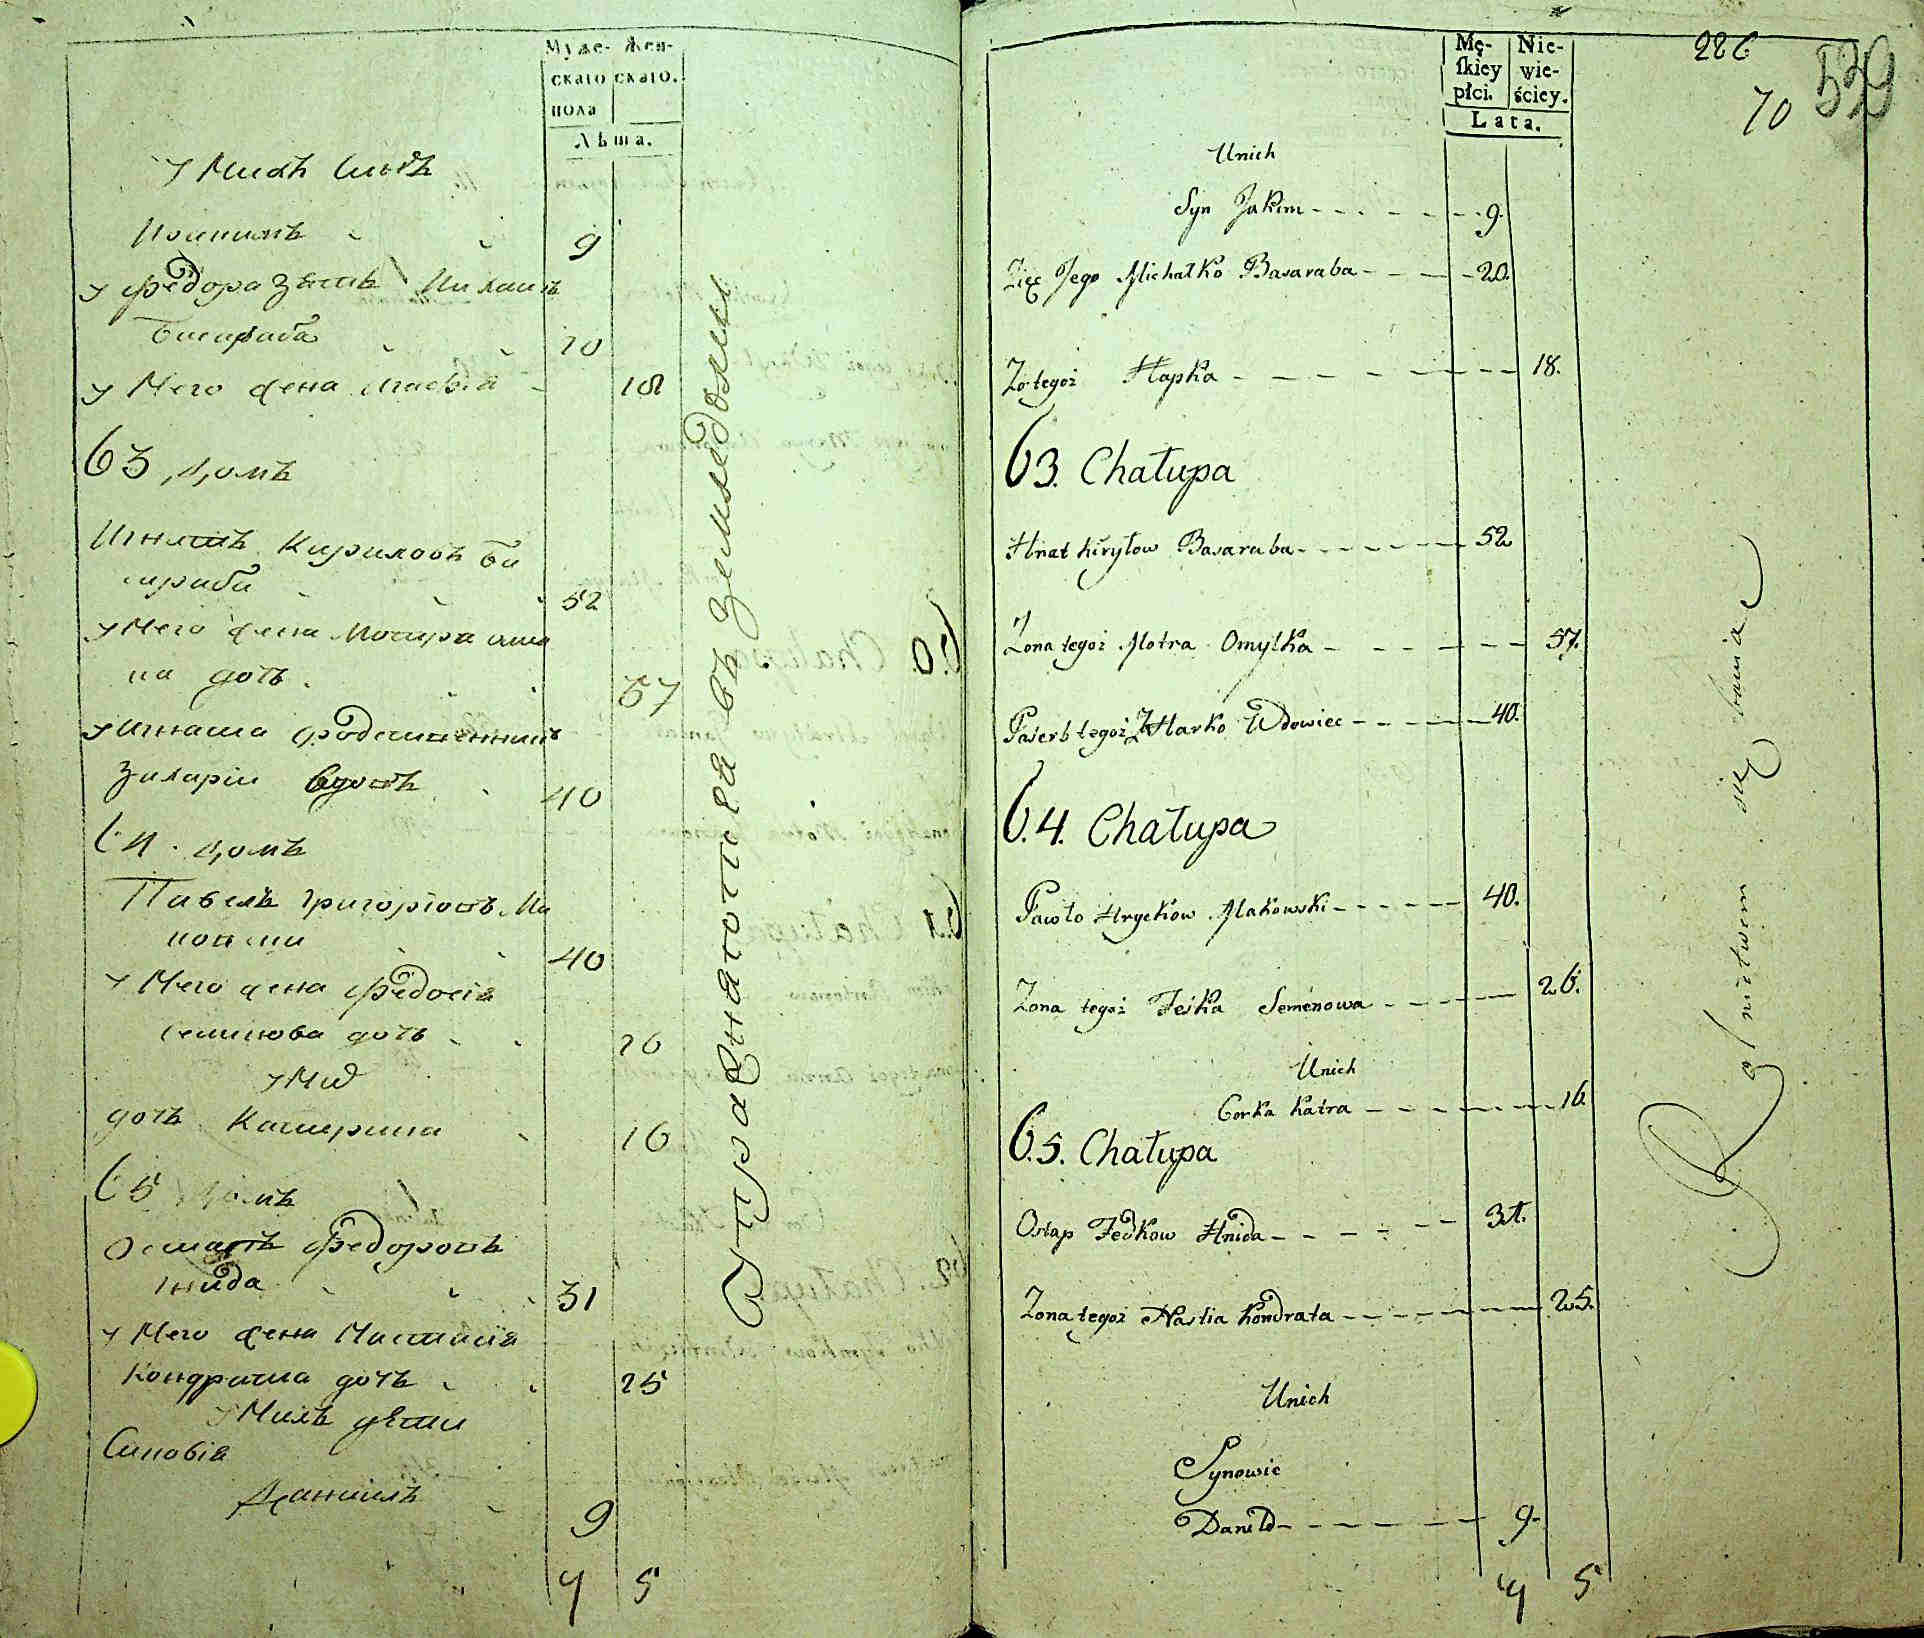 Муже-
скаго
пола
Жен-
скаго.
Лѣта.
У Нихъ Сынъ
Иоакимъ 9
У Федора Зять
Басараба 20
У Него жена 18
63, домъ
Игнатъ Кириловъ Ба
сараба 52
У Него жена Мотра
на дочь 57
У Игната
Вдовъ 40
64. домъ
Павелъ Григорьовъ Ма
ковски 40
У Него жена Федосія
Семинова дочь 26
У Них
дочь Катерина 16
65 домъ
Остапъ Федоровъ
гнида 31
У Него жена Настасія
Кондратова дочь 25
У Нихъ дѣти
Синовія
Даниилъ 9
7 5
Упражняются въ земледоліи
Mę-
skiey
płci.
Nie-
wie-
ściey.
Lata.
226
70
539
Unich
Syn Jakim 9.
Zięć Jego Michałko Basaraba 20.
Żo tegoż Hapka 18.
63. Chałupa
Hnat Kiryłow Basaraba 52
Żona tegoż Motra Omytka 57.
Paserb tegoż Harko Wdowiec 40.
64. Chałupa
Pawło Hryckow Makowski 40.
Żona tegoż Feśka Semenowa 26.
Unich
Corka Katra 16
65. Chałupa
Ostap Fedkow Hnida 31.
Żona tegoż Nastia Kondrata 25.
Unich
Synowie
Daniło 9.
7 5
Rolnictwem się bawia